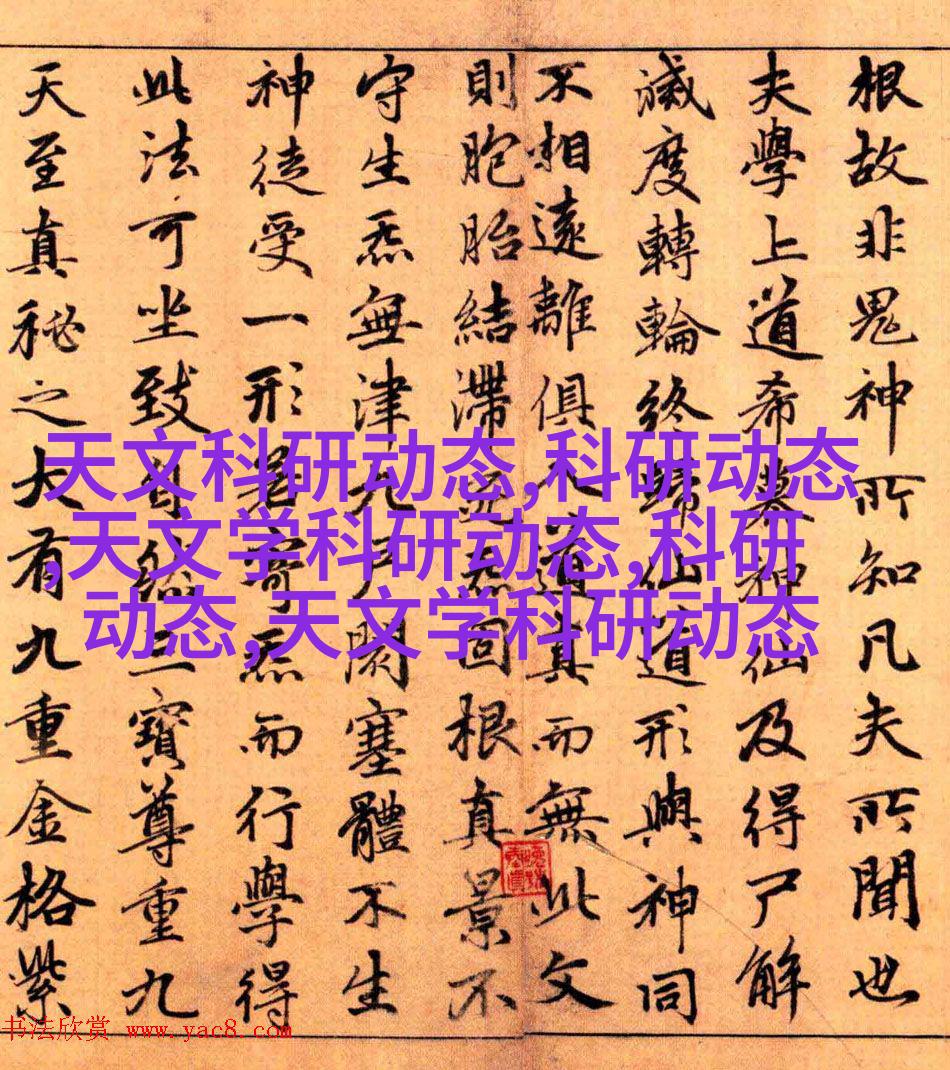 根故非鬼神所知凡夫所聞也
夫學上道希慕神仙及得尸解
滅度轉輪終歸仙道形與神同
不相遠離俱入道真而無此文
則胞胎結滯死炁固根真景不
守生炁無津九戶閉塞體不生
神徒受一形若寄炁而行學得
此法可坐致自然三寶尊重九
天至真秘之大有九重金格紫
天文科研动态,科研动态
,天文学科研动态,科研
动态,天文学科研动态
书法欣赏 www.yac8.com